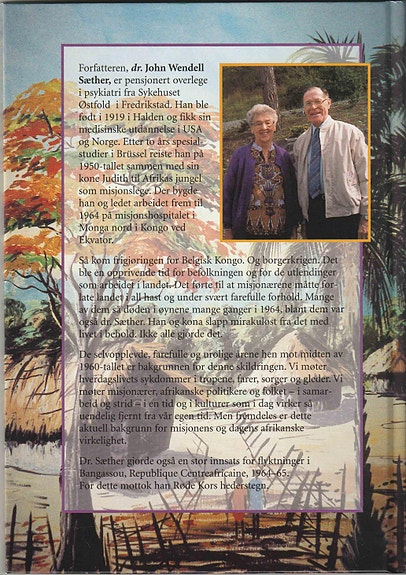 Forfatteren, dr. John Wendell
Sæther, er pensjonert overlege
i psykiatri fra Sykehuset
Østfold i Fredrikstad. Han ble
født i 1919 i Halden og fikk sin
medisinske utdannelse i USA
og Norge. Etter to års spesial-
studier i Brüssel reiste han på
1950-tallet sammen med sin
kone Judith til Afrikas jungel
som misjonslege. Der bygde
han og ledet arbeidet frem til
1964 på misjonshospitalet i
Monga nord i Kongo ved
Ekvator.
Så kom frigjøringen for Belgisk Kongo. Og borgerkrigen. Det
ble en opprivende tid for befolkningen og for de utlendinger
som arbeidet i landet. Det førte til at misjonærene måtte for-
late landet i all hast og under svært farefulle forhold. Mange
av dem så døden i øynene mange ganger i 1964, blant dem var
også dr. Sæther. Han og kona slapp mirakuløst fra det med
livet i behold. Ikke alle gjorde det.
De selvopplevde, farefulle og urolige årene hen mot midten av
1960-tallet er bakgrunnen for denne skildringen. Vi møter
hverdagslivets sykdommer i tropene, farer, sorger og gleder. Vi
møter misjonærer, afrikanske politikere og folket – i samar-
beid og strid – i en tid og i kulturer som i dag virker så
uendelig fjernt fra vår egen tid. Men fremdeles er dette
aktuell bakgrunn for misjonens og dagens afrikanske
virkelighet.
Dr. Sæther gjorde også en stor innsats for flyktninger i
Bangassou, Republique Centreafricaine, 1964–65.
For dette mottok han Røde Kors hederstegn.